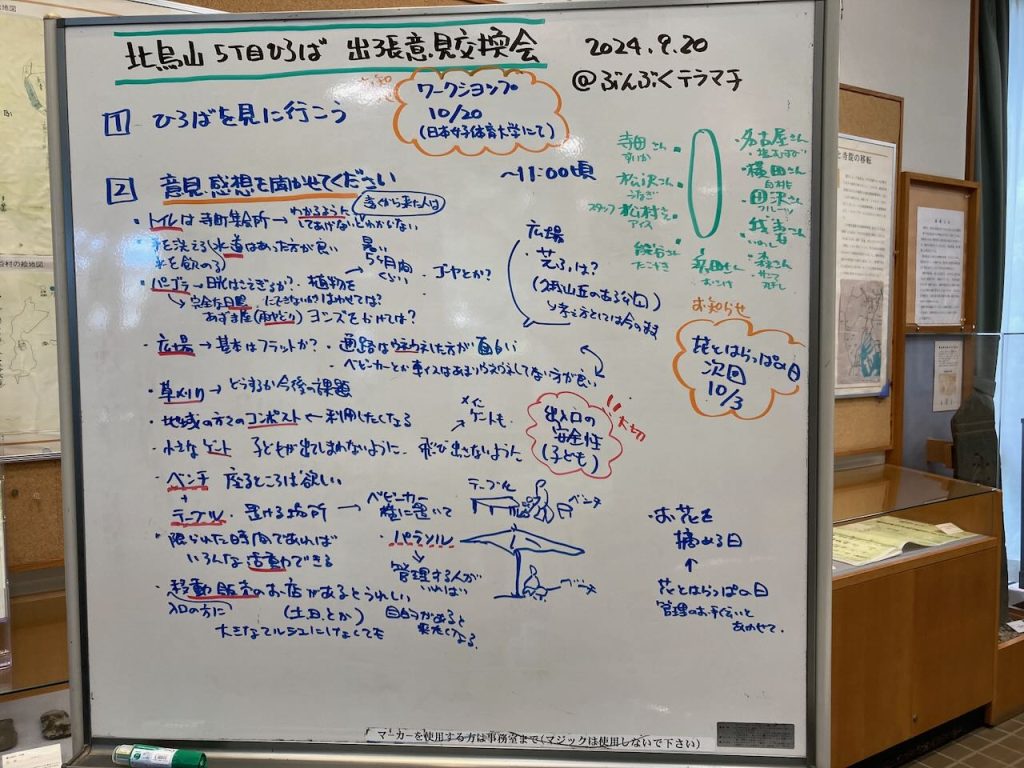 北烏山5丁目ひろば 出張意見交換会 2024.9.20
@ぶんぶくテラマチ
お知らせ
ワークショップ
10/20
(日本女子体育大学にて)
1 ひろばを見に行こう
~11:00頃
2 意見感想を聞かせてください
遠くから来た人は
・トイレは寺町集会所→わかるように
してあげないとわからない
・手を洗える水道はあった方が良い
水を飲める
・パーゴラ→日よけはさえぎるか?・植物を
暑い
5ヶ月間
ぐらい
・ゴヤとか?
あずま屋(雨やどり) ヨシズをかけては?
・広場→基本はフラットか?・通路はウネウネした方が面白い
・ベビーカーとか車イスはあまりウネウネしてない方が良い
・草メリク→どうするか今後の課題
・地域の方でのコンポスト←利用したくなる
・小さなゲート 子どもが出てしまわないように・飛び出さないように
ゲートも
・ベンチ 座るところは欲しい
+
テーブル・置ける場所→ベビーカー
横に置いて
・限られた時間であれば
いろんな活動できる
・移動販売のお店があるとうれしい
入口の方に (土日とか)
大きなマルシェにしなくても
・パラソル
管理する人が
いれば
目的があると
来たくなる
テーブル
ベンチ
ベンチ
広場
・芝生は?
出入口の
安全性
(子ども)
大切
寺田さん
すいか
松沢さん
うなぎ
スタッフ 松村さん
アイス
たこやき
名古屋さん
横田さん
白桃
田沢さん
フルーツ
森さん
お知らせ
花とはらっぱの日
次回
10/3
・お花を
摘める日
↑
花とはらっぱの日
管理のお手伝いと
あわせて。
マーカーを使用する方は事務室まで(マジックは使用しないで下さい)